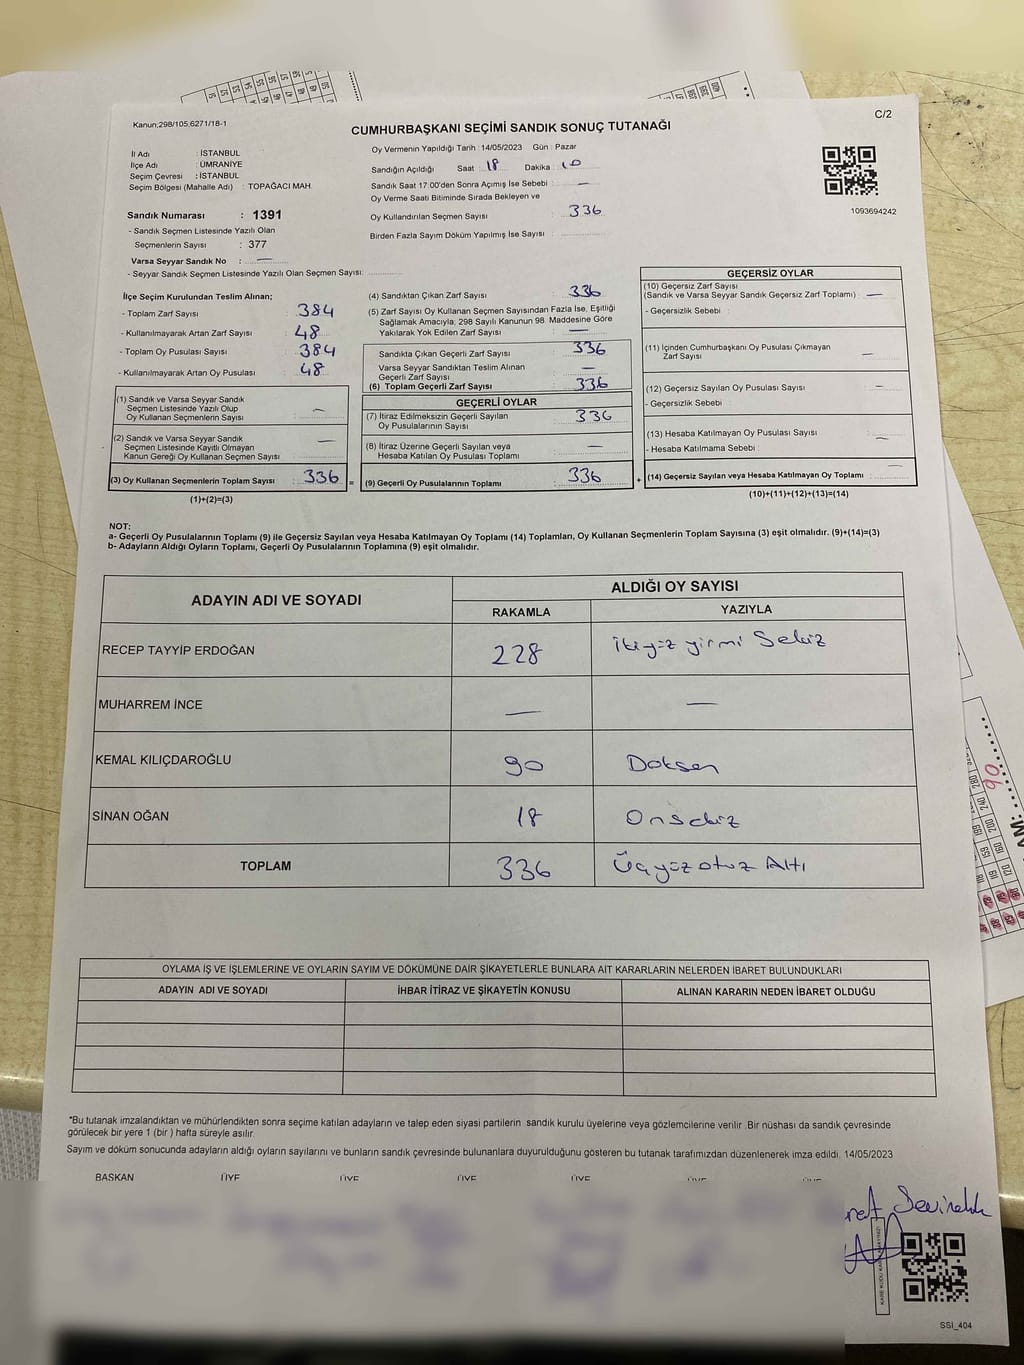 Kanun:298/105,6271/18-1
C/2
CUMHURBAŞKANI SEÇİMİ SANDIK SONUÇ TUTANAĞI
İl Adı : İSTANBUL
İlçe Adı : ÜMRANİYE
Seçim Çevresi : İSTANBUL
Seçim Bölgesi (Mahalle Adı) : TOPAĞACI MAH.
Sandık Numarası : 1391
- Sandık Seçmen Listesinde Yazılı Olan
Seçmenlerin Sayısı : 377
Varsa Seyyar Sandık No : —
- Seyyar Sandık Seçmen Listesinde Yazılı Olan Seçmen Sayısı:
Oy Vermenin Yapıldığı Tarih : 14/05/2023 Gün : Pazar
Sandığın Açıldığı Saat : 18 Dakika : 10
Sandık Saat 17:00'den Sonra Açımış İse Sebebi : —
Oy Verme Saati Bitiminde Sırada Bekleyen ve
Oy Kullandırılan Seçmen Sayısı : 336
Birden Fazla Sayım Döküm Yapılmış İse Sayısı :
1093694242
İlçe Seçim Kurulundan Teslim Alınan;
- Toplam Zarf Sayısı : 384
- Kullanılmayarak Artan Zarf Sayısı : 48
- Toplam Oy Pusulası Sayısı : 384
- Kullanılmayarak Artan Oy Pusulası : 48
(1) Sandık ve Varsa Seyyar Sandık
Seçmen Listesinde Yazılı Olup
Oy Kullanan Seçmenlerin Sayısı : —
(2) Sandık ve Varsa Seyyar Sandık
Seçmen Listesinde Kayıtlı Olmayan
Kanun Gereği Oy Kullanan Seçmen Sayısı : —
(3) Oy Kullanan Seçmenlerin Toplam Sayısı : 336 =
(1)+(2)=(3)
(4) Sandıktan Çıkan Zarf Sayısı : 336
(5) Zarf Sayısı Oy Kullanan Seçmen Sayısından Fazla İse, Eşitliği
Sağlamak Amacıyla, 298 Sayılı Kanunun 98. Maddesine Göre
Yakılarak Yok Edilen Zarf Sayısı : —
Sandıkta Çıkan Geçerli Zarf Sayısı : 336
Varsa Seyyar Sandıktan Teslim Alınan
Geçerli Zarf Sayısı : —
(6) Toplam Geçerli Zarf Sayısı : 336
GEÇERLİ OYLAR
(7) İtiraz Edilmeksizin Geçerli Sayılan
Oy Pusulalarının Sayısı : 336
(8) İtiraz Üzerine Geçerli Sayılan veya
Hesaba Katılan Oy Pusulası Toplamı : —
(9) Geçerli Oy Pusulalarının Toplamı : 336 +
GEÇERSİZ OYLAR
(10) Geçersiz Zarf Sayısı
(Sandık ve Varsa Seyyar Sandık Geçersiz Zarf Toplamı) : —
- Geçersizlik Sebebi :
(11) İçinden Cumhurbaşkanı Oy Pusulası Çıkmayan
Zarf Sayısı : —
(12) Geçersiz Sayılan Oy Pusulası Sayısı : —
- Geçersizlik Sebebi :
(13) Hesaba Katılmayan Oy Pusulası Sayısı : —
- Hesaba Katılmama Sebebi :
(14) Geçersiz Sayılan veya Hesaba Katılmayan Oy Toplamı : —
(10)+(11)+(12)+(13)=(14)
NOT:
a- Geçerli Oy Pusulalarının Toplamı (9) ile Geçersiz Sayılan veya Hesaba Katılmayan Oy Toplamı (14) Toplamları, Oy Kullanan Seçmenlerin Toplam Sayısına (3) eşit olmalıdır. (9)+(14)=(3)
b- Adayların Aldığı Oyların Toplamı, Geçerli Oy Pusulalarının Toplamına (9) eşit olmalıdır.
ADAYIN ADI VE SOYADI
ALDIĞI OY SAYISI
RAKAMLA YAZIYLA
RECEP TAYYİP ERDOĞAN 228 İkiyüz yirmi Sekiz
MUHARREM İNCE — —
KEMAL KILIÇDAROĞLU 90 Doksan
SİNAN OĞAN 18 Onsekiz
TOPLAM 336 Üçyüz otuz Altı
OYLAMA İŞ VE İŞLEMLERİNE VE OYLARIN SAYIM VE DÖKÜMÜNE DAİR ŞİKAYETLERLE BUNLARA AİT KARARLARIN NELERDEN İBARET BULUNDUKLARI
ADAYIN ADI VE SOYADI İHBAR İTİRAZ VE ŞİKAYETİN KONUSU ALINAN KARARIN NEDEN İBARET OLDUĞU
*Bu tutanak imzalandıktan ve mühürlendikten sonra seçime katılan adayların ve talep eden siyasi partilerin sandık kurulu üyelerine veya gözlemcilerine verilir .Bir nüshası da sandık çevresinde
görülecek bir yere 1 (bir ) hafta süreyle asılır.
Sayım ve döküm sonucunda adayların aldığı oyların sayılarını ve bunların sandık çevresinde bulunanlara duyurulduğunu gösteren bu tutanak tarafımızdan düzenlenerek imza edildi. 14/05/2023
BAŞKAN ÜYE ÜYE ÜYE ÜYE ÜYE ÜYE
SSİ_404
90